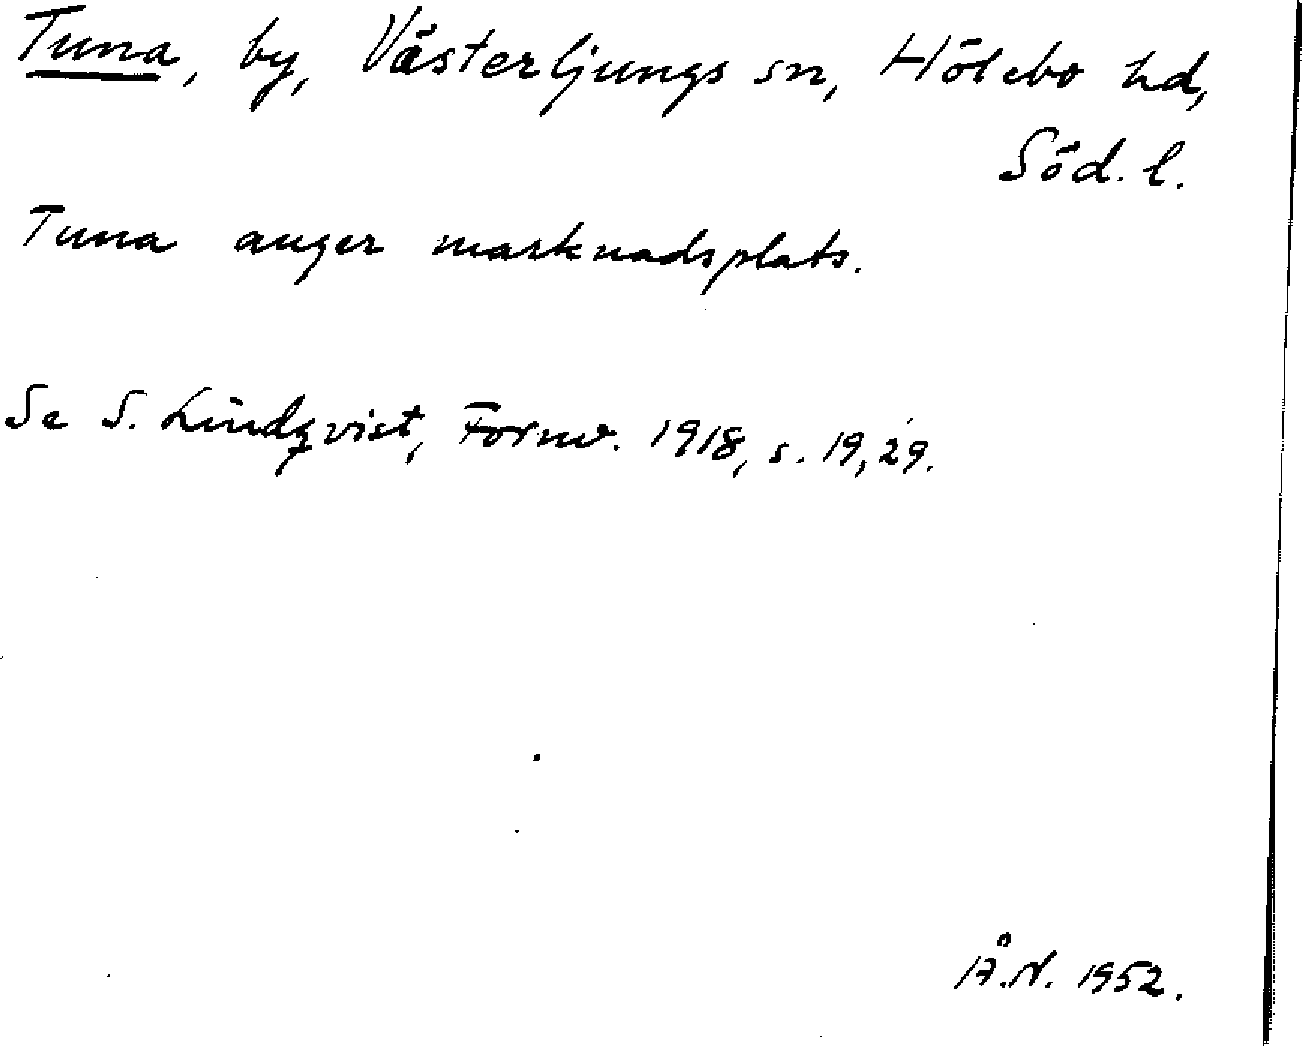 Tuna, by, Västerljungs sn, Hölebo hd,
Söd. l.
Tuna anger marknadsplats.
Se S. Lindqvist, Fornv. 1918, s. 19, 29.
Å.N. 1952.